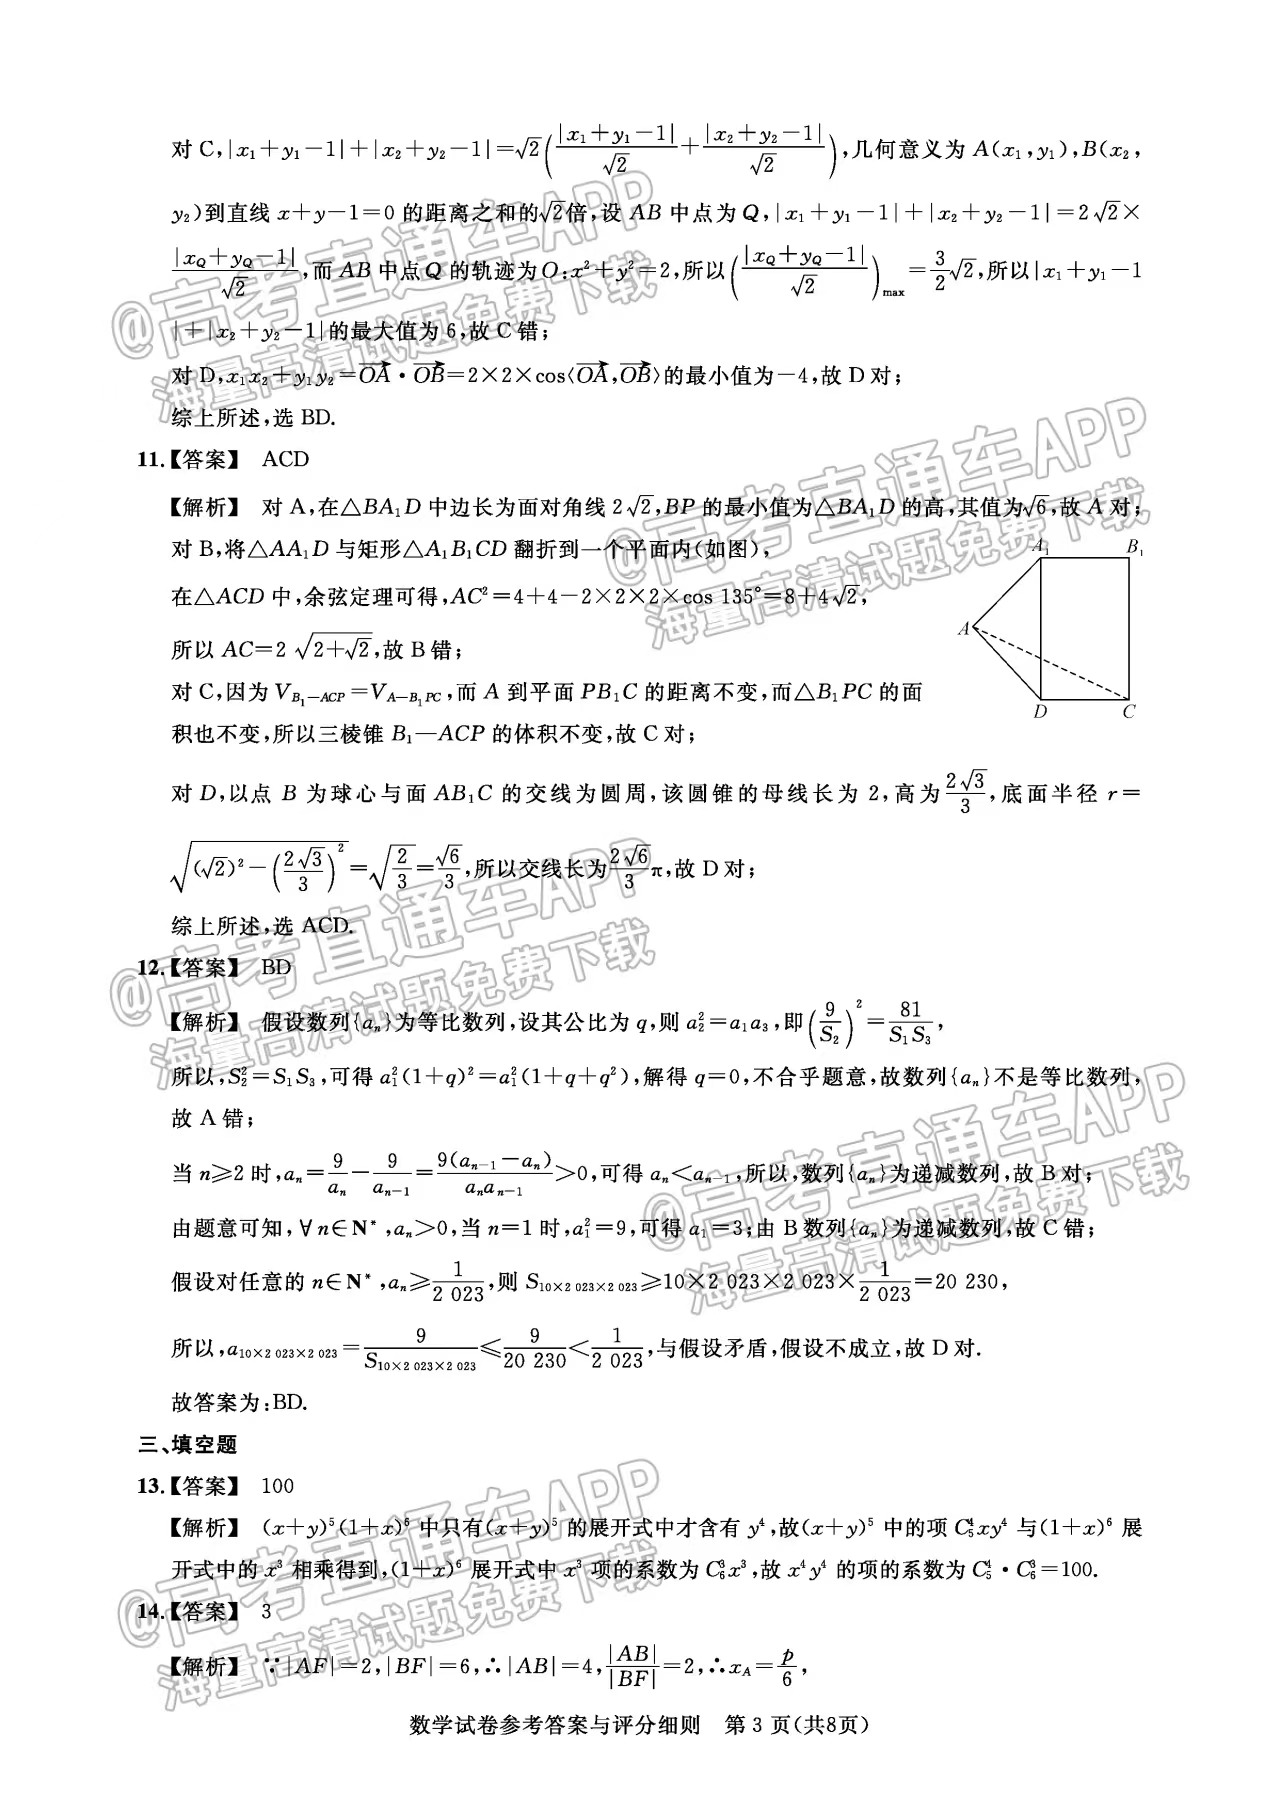 对 C,|x₁+y₁-1|+|x₂+y₂-1|=√2(|x₁+y₁-1|/√2+|x₂+y₂-1|/√2),几何意义为 A(x₁,y₁),B(x₂,
y₂)到直线 x+y-1=0 的距离之和的√2倍,设 AB 中点为 Q,|x₁+y₁-1|+|x₂+y₂-1|=2√2×
|x_Q+y_Q-1|/√2,而 AB 中点 Q 的轨迹为 O:x²+y²=2,所以(|x_Q+y_Q-1|/√2)max=3/2√2,所以|x₁+y₁-1
|+|x₂+y₂-1|的最大值为 6,故 C 错;
对 D,x₁x₂+y₁y₂=OA→·OB→=2×2×cos⟨OA→,OB→⟩的最小值为-4,故 D 对;
综上所述,选 BD.
11.【答案】 ACD
【解析】 对 A,在△BA₁D 中边长为面对角线 2√2,BP 的最小值为△BA₁D 的高,其值为√6,故 A 对;
对 B,将△AA₁D 与矩形△A₁B₁CD 翻折到一个平面内(如图),
在△ACD 中,余弦定理可得,AC²=4+4-2×2×2×cos 135°=8+4√2,
所以 AC=2√(2+√2),故 B 错;
A₁ B₁
A
D C
对 C,因为 V_{B₁-ACP}=V_{A-B₁PC},而 A 到平面 PB₁C 的距离不变,而△B₁PC 的面
积也不变,所以三棱锥 B₁—ACP 的体积不变,故 C 对;
对 D,以点 B 为球心与面 AB₁C 的交线为圆周,该圆锥的母线长为 2,高为2√3/3,底面半径 r=
√((√2)²-(2√3/3)²)=√(2/3)=√6/3,所以交线长为2√6/3π,故 D 对;
综上所述,选 ACD.
12.【答案】 BD
【解析】 假设数列{aₙ}为等比数列,设其公比为 q,则 a₂²=a₁a₃,即(9/S₂)²=81/(S₁S₃),
所以,S₂²=S₁S₃,可得 a₁²(1+q)²=a₁²(1+q+q²),解得 q=0,不合乎题意,故数列{aₙ}不是等比数列,
故 A 错;
当 n≥2 时,aₙ=9/aₙ-9/aₙ₋₁=9(aₙ₋₁-aₙ)/(aₙaₙ₋₁)>0,可得 aₙ<aₙ₋₁,所以,数列{aₙ}为递减数列,故 B 对;
由题意可知,∀n∈N*,aₙ>0,当 n=1 时,a₁²=9,可得 a₁=3;由 B数列{aₙ}为递减数列,故 C 错;
假设对任意的 n∈N*,aₙ≥1/2 023,则 S_{10×2 023×2 023}≥10×2 023×2 023×1/2 023=20 230,
所以,a_{10×2 023×2 023}=9/S_{10×2 023×2 023}≤9/20 230<1/2 023,与假设矛盾,假设不成立,故 D 对.
故答案为:BD.
三、填空题
13.【答案】 100
【解析】 (x+y)⁵(1+x)⁶ 中只有(x+y)⁵ 的展开式中才含有 y⁴,故(x+y)⁵ 中的项 C₅⁴xy⁴ 与(1+x)⁶ 展
开式中的 x³ 相乘得到,(1+x)⁶ 展开式中 x³ 项的系数为 C₆³x³,故 x⁴y⁴ 的项的系数为 C₅⁴·C₆³=100.
14.【答案】 3
【解析】 ∵|AF|=2,|BF|=6,∴|AB|=4,|AB|/|BF|=2,∴x_A=p/6,
数学试卷参考答案与评分细则 第 3 页(共8页)
@高考直通车APP
海量高清试题免费下载
@高考直通车APP
海量高清试题免费下载
@高考直通车APP
海量高清试题免费下载
@高考直通车APP
海量高清试题免费下载
@高考直通车APP
海量高清试题免费下载